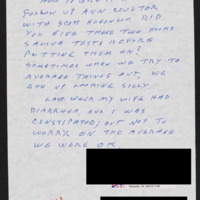 FOLLOW UP ANN COULTER
WITH SCOTT
YOU GIVE THESE TWO
SALIVA TESTS BEFORE
PUTTING THEM ON?
SOMETIMES WHEN WE TRY TO
AVERAGE THINGS OUT, WE
END UP LOOKING SILLY.
LAST WEEK MY WIFE HAD
DIARRHEA, AND I WAS
CONSTIPATED; BUT NOT TO
WORRY, ON THE AVERAGE
WE WERE OK.